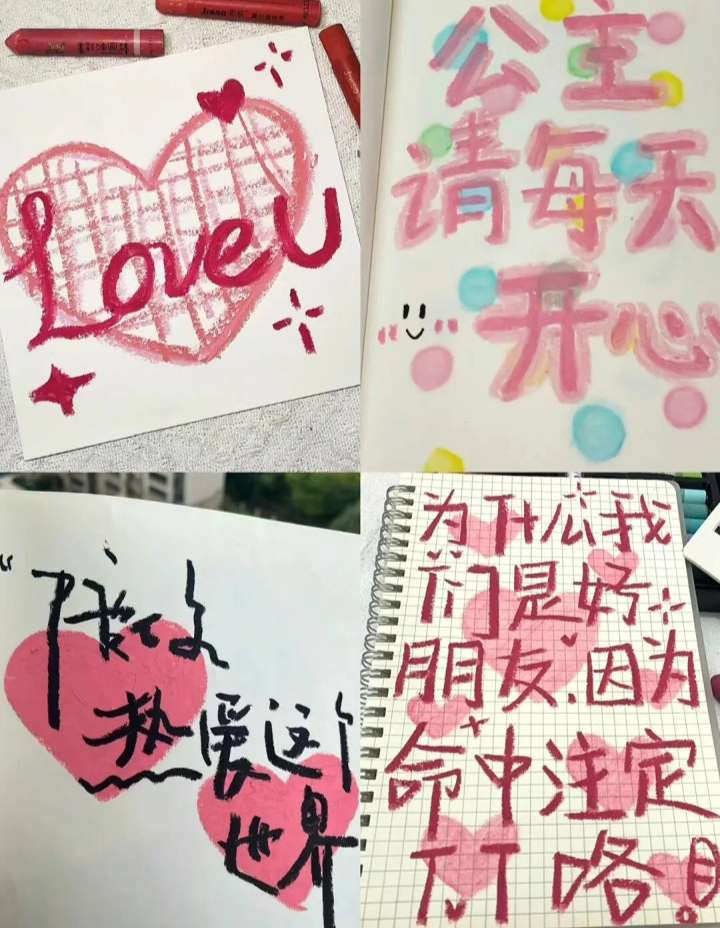 Love U
公主
请每天
开心
热爱这个
世界
为什么我
们是好
朋友.因为
命中注定
TT咯!